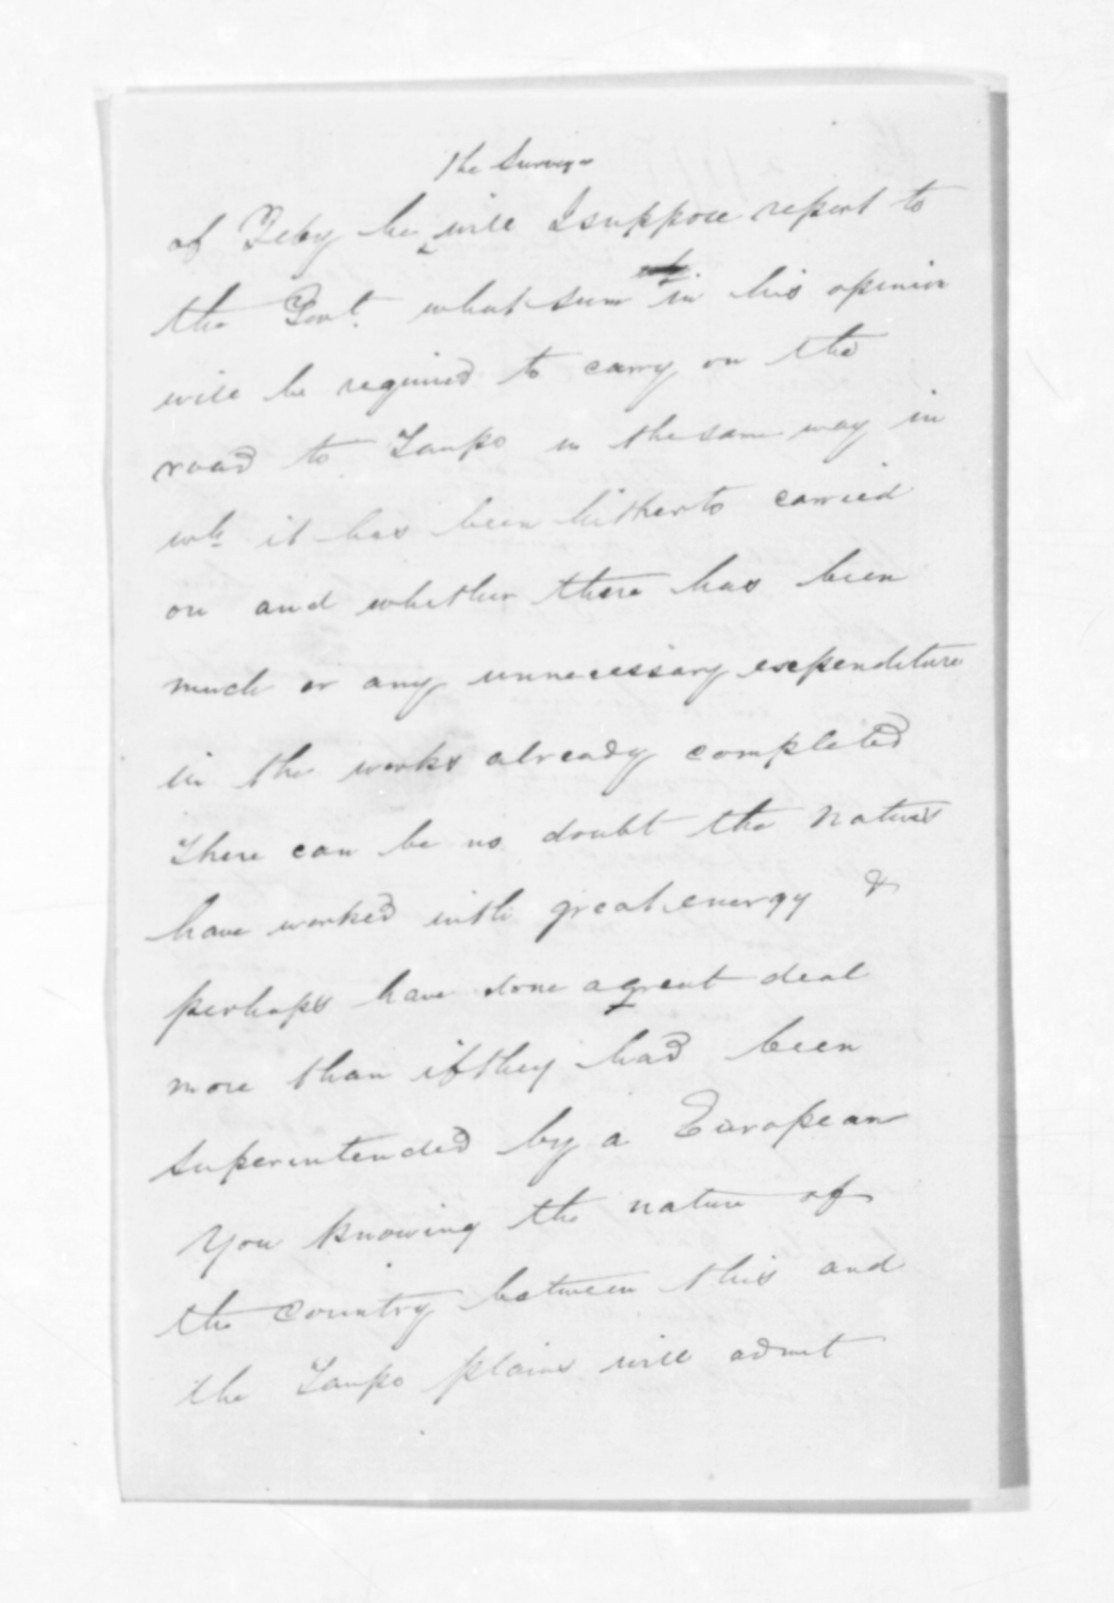 the Surveyor
of Feby he will I suppose report to
the Govt. what sum in his opinion
will be required to carry on the
road to Taupo in the same way in
wh. it has been hitherto carried
on and whether there has been
much or any unnecessary expenditure
in the works already completed
There can be no doubt the Natives
have worked with great energy &
perhaps have done a great deal
more than if they had been
superintended by a European
You knowing the nature of
the country between this and
the Taupo plains will admit